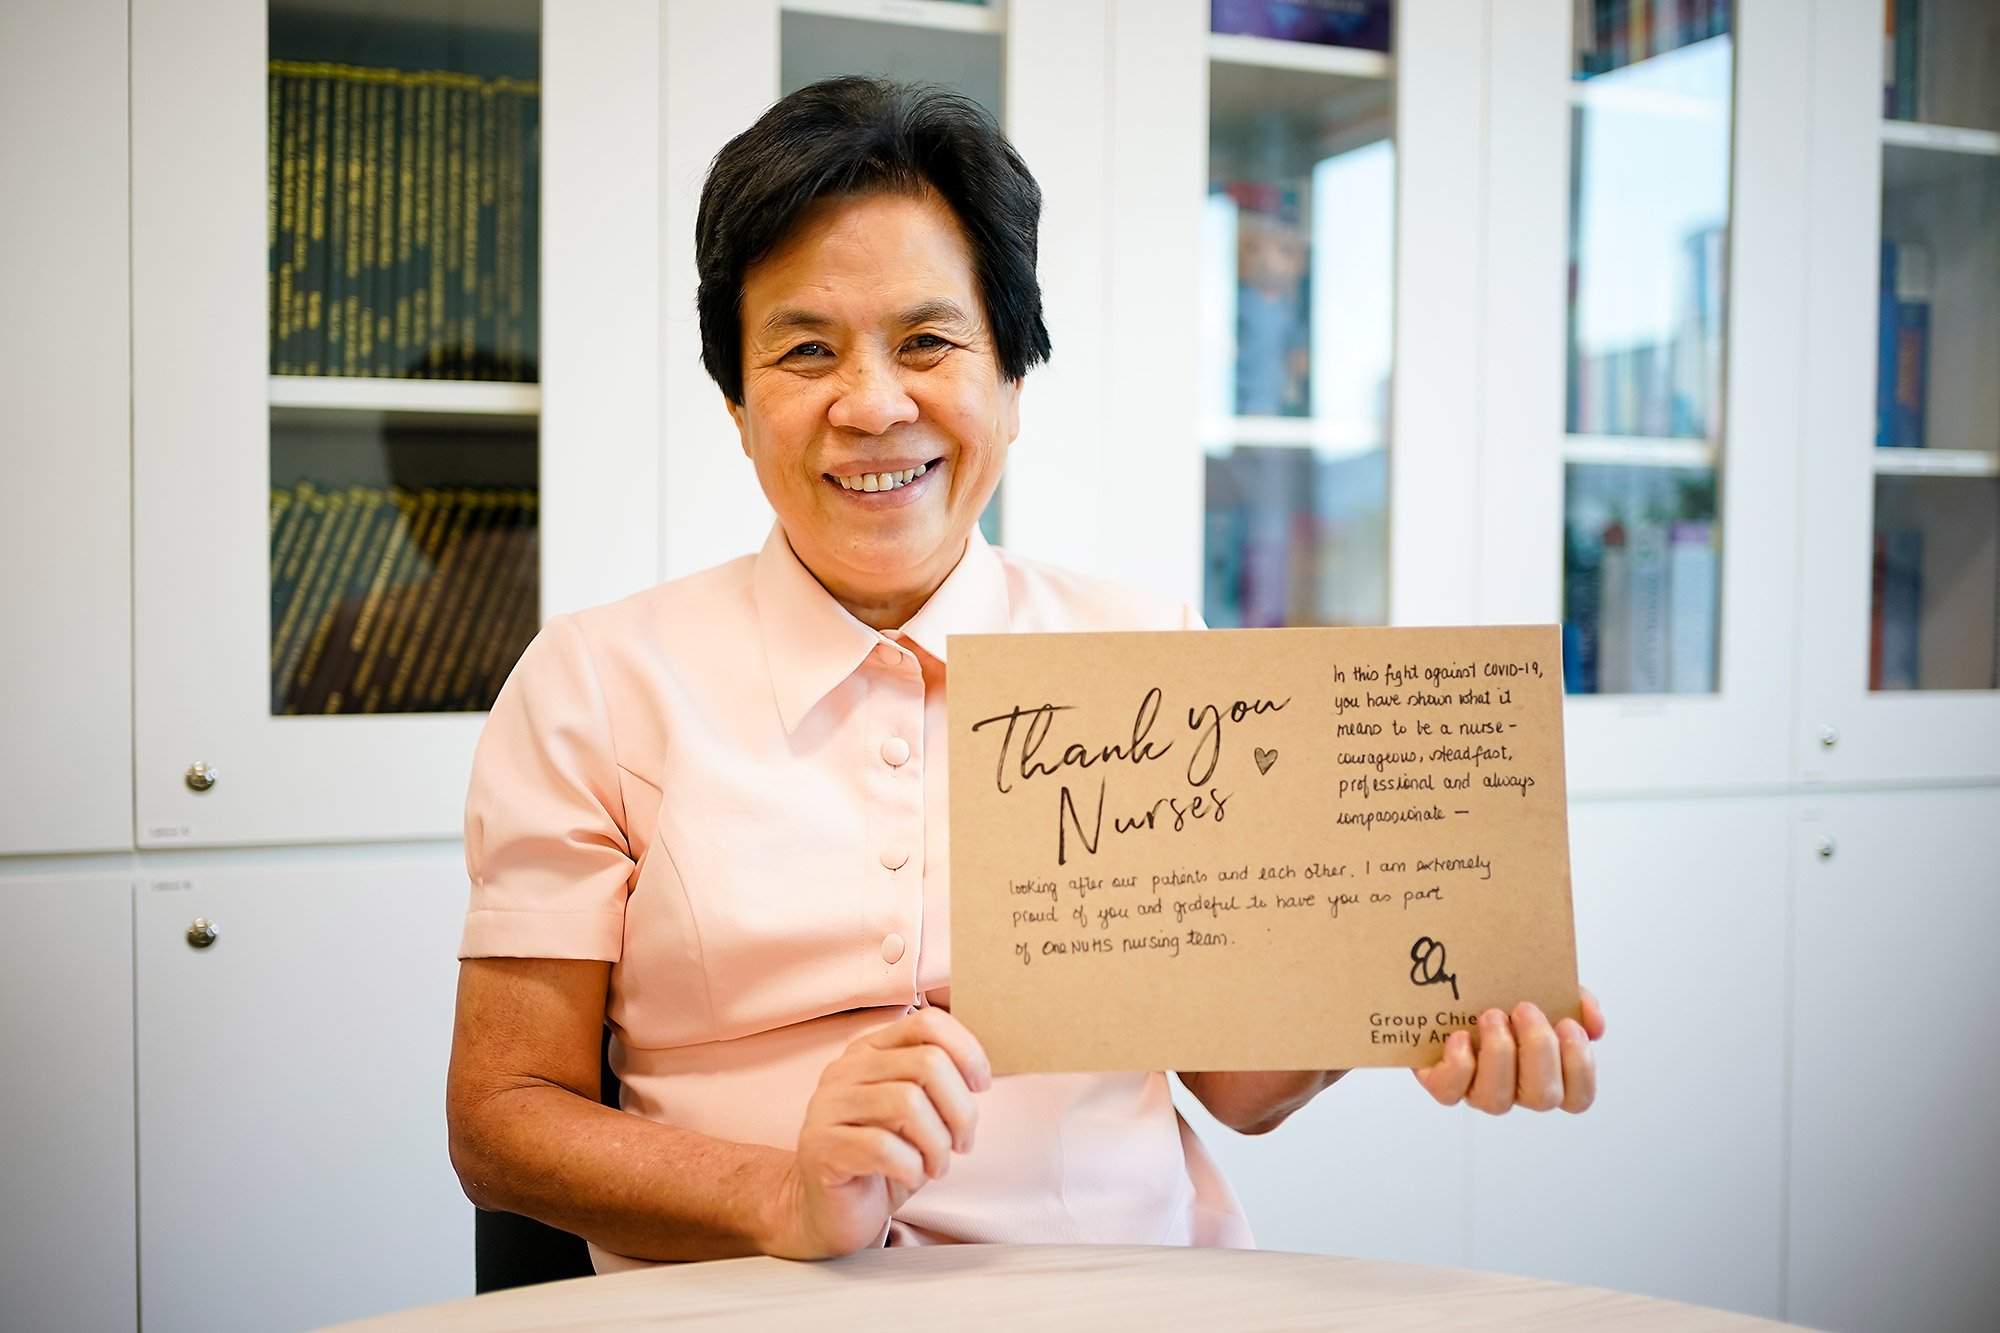 Thank you
Nurses
In this fight against COVID-19,
you have shown what it
means to be a nurse -
courageous, steadfast,
professional and always
compassionate —
looking after our patients and each other. I am extremely
proud of you and grateful to have you as part
of One NUHS nursing team.
Group
Emily